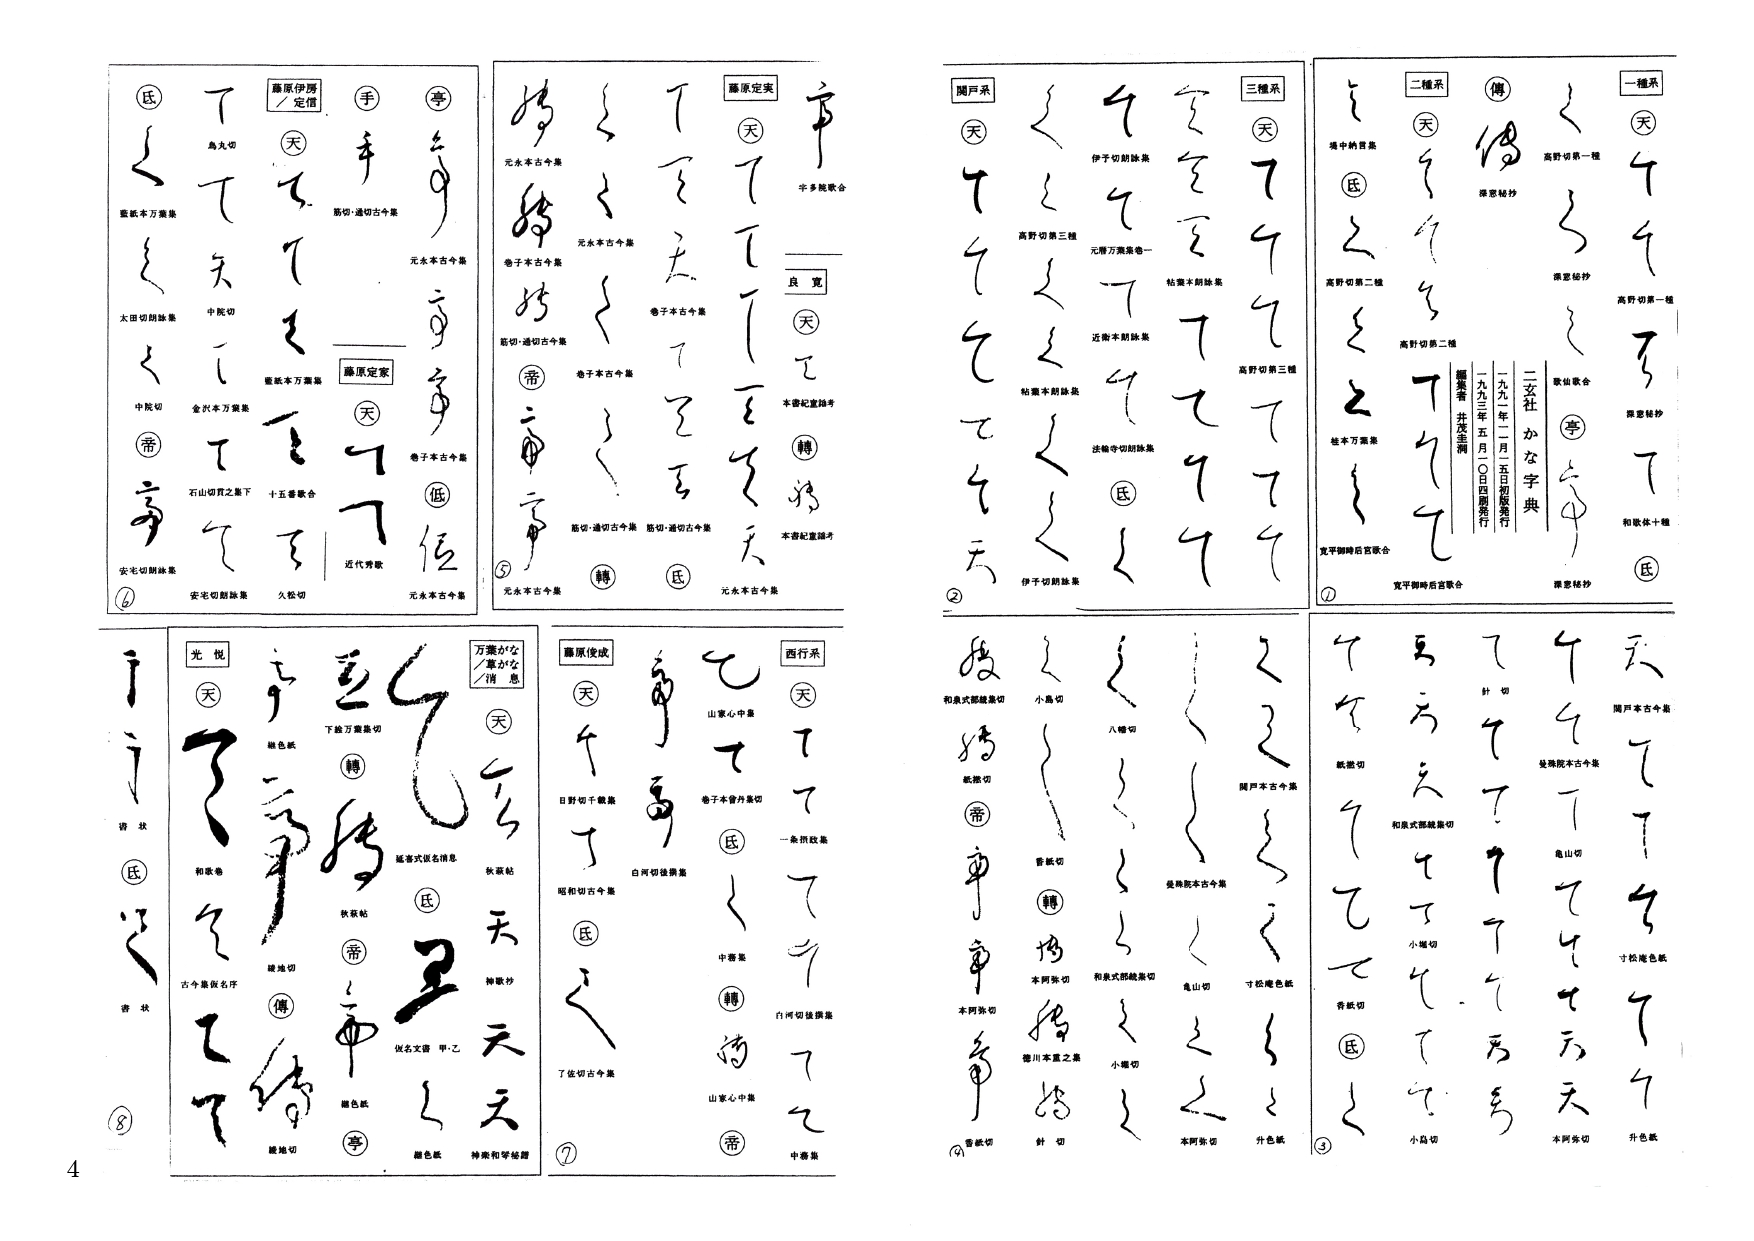 一種系
天
高野切第一種
深窓秘抄
和歌体十種
氐
高野切第一種
深窓秘抄
歌仙歌合
亭
深窓秘抄
傳
深窓秘抄
二玄社 かな字典
一九九一年一一月一五日初版発行
一九九三年五月一〇日四刷発行
編集者 井茂圭洞
二種系
天
高野切第二種
寛平御時后宮歌合
堤中納言集
氐
高野切第二種
桂本万葉集
寛平御時后宮歌合
①
三種系
天
高野切第三種
粘葉本朗詠集
伊予切朗詠集
元暦万葉集巻一
近衛本朗詠集
法輪寺切朗詠集
氐
高野切第三種
粘葉本朗詠集
伊予切朗詠集
関戸系
天
②
関戸本古今集
寸松庵色紙
升色紙
曼殊院本古今集
亀山切
本阿弥切
針切
和泉式部続集切
小堀切
小島切
紙撚切
香紙切
氐
③
関戸本古今集
寸松庵色紙
升色紙
曼殊院本古今集
亀山切
本阿弥切
八幡切
和泉式部続集切
小堀切
小島切
香紙切
轉
本阿弥切
徳川本重之集
針切
和泉式部続集切
紙撚切
帝
本阿弥切
香紙切
④
宇多院歌合
良寛
天
本書紀重詠考
轉
本書紀重詠考
藤原定実
天
元永本古今集
巻子本古今集
筋切・通切古今集
氐
元永本古今集
巻子本古今集
筋切・通切古今集
轉
元永本古今集
巻子本古今集
筋切・通切古今集
帝
元永本古今集
⑤
亭
元永本古今集
巻子本古今集
低
元永本古今集
手
筋切・通切古今集
藤原定家
天
近代秀歌
藤原伊房／定信
天
藍紙本万葉集
十五番歌合
久松切
烏丸切
中院切
金沢本万葉集
石山切貫之集下
安宅切朗詠集
氐
藍紙本万葉集
太田切朗詠集
中院切
帝
安宅切朗詠集
⑥
西行系
天
一条摂政集
白河切後撰集
中務集
山家心中集
巻子本曾丹集切
氐
中務集
轉
山家心中集
帝
白河切後撰集
藤原俊成
天
日野切千載集
昭和切古今集
氐
了佐切古今集
⑦
万葉がな／草がな／消息
天
秋萩帖
神歌抄
神楽和琴秘譜
延喜式仮名消息
氐
仮名文書 甲・乙
継色紙
下絵万葉集切
轉
秋萩帖
帝
継色紙
亭
継色紙
綾地切
傳
綾地切
光悦
天
和歌巻
古今集仮名序
書状
氐
書状
⑧
4